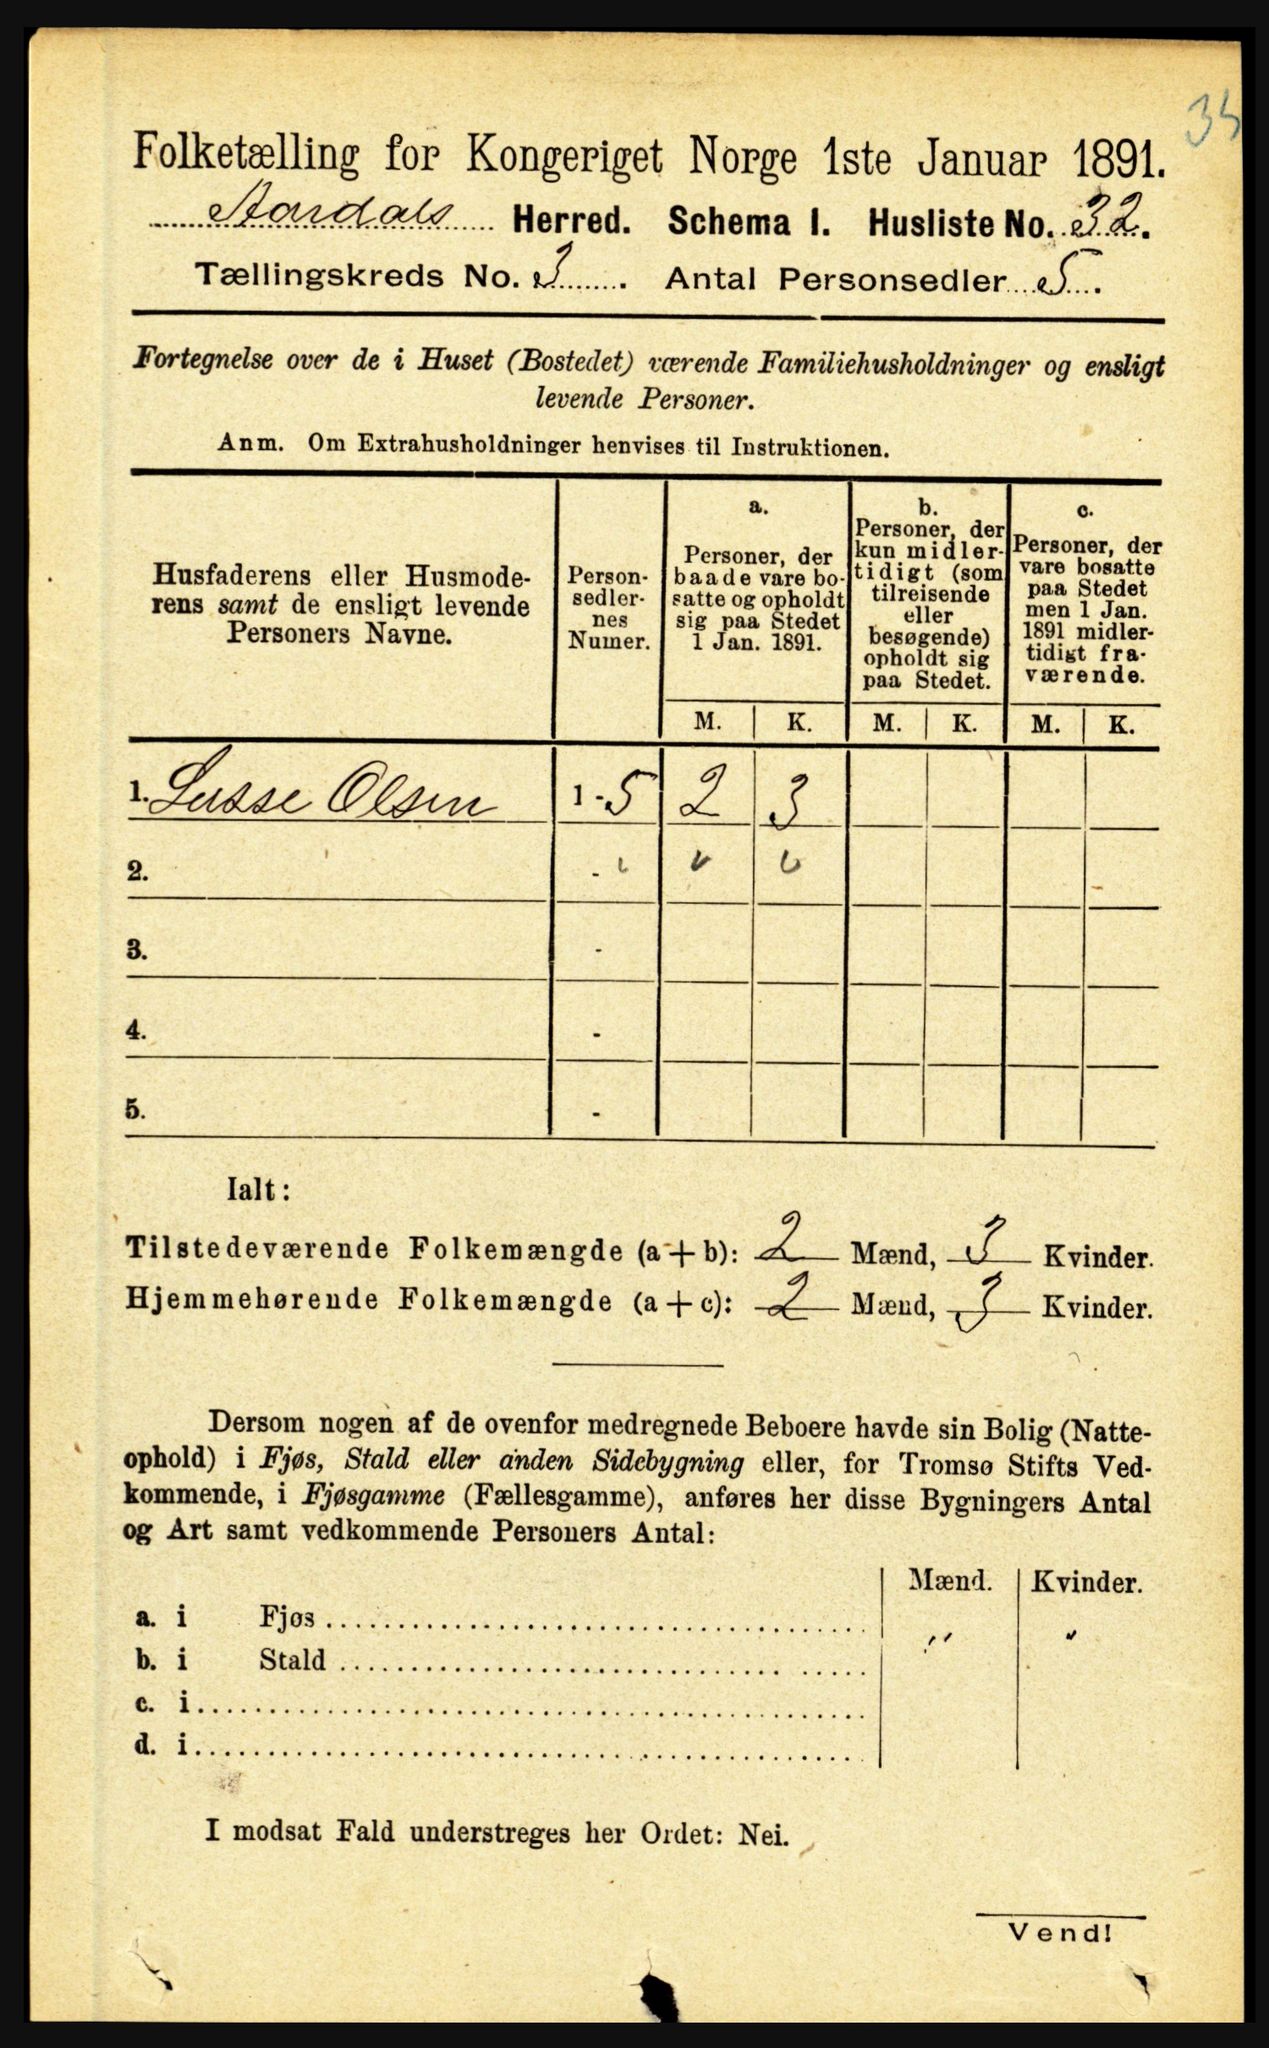 35
Folketælling for Kongeriget Norge 1ste Januar 1891.
Aardals Herred. Schema I. Husliste No. 32.
Tællingskreds No. 3. Antal Personsedler 5.
Fortegnelse over de i Huset (Bostedet) værende Familiehusholdninger og ensligt
levende Personer.
Anm. Om Extrahusholdninger henvises til Instruktionen.
Husfaderens eller Husmode-
rens samt de ensligt levende
Personers Navne.
Person-
sedler-
nes
Numer.
a.
Personer, der
baade vare bo-
satte og opholdt
sig paa Stedet
1 Jan. 1891.
b.
Personer, der
kun midler-
tidigt (som
tilreisende
eller
besøgende)
opholdt sig
paa Stedet.
c.
Personer, der
vare bosatte
paa Stedet
men 1 Jan.
1891 midler-
tidigt fra-
værende.
M. K. M. K. M. K.
1. Lasse Olsen 1-5 2 3
2. -
3. -
4. -
5. -
Ialt:
Tilstedeværende Folkemængde (a + b): 2 Mænd, 3 Kvinder.
Hjemmehørende Folkemængde (a + c): 2 Mænd, 3 Kvinder.
Dersom nogen af de ovenfor medregnede Beboere havde sin Bolig (Natte-
ophold) i Fjøs, Stald eller anden Sidebygning eller, for Tromsø Stifts Ved-
kommende, i Fjøsgamme (Fællesgamme), anføres her disse Bygningers Antal
og Art samt vedkommende Personers Antal:
Mænd. Kvinder.
a. i Fjøs
" "
b. i Stald
c. i
d. i
I modsat Fald understreges her Ordet: Nei.
Vend!